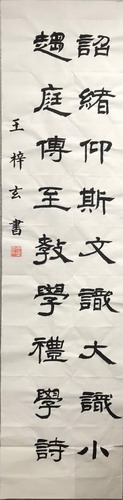 詔緒仰斯文識大識小
趨庭傳至教學禮學詩
王梓玄書